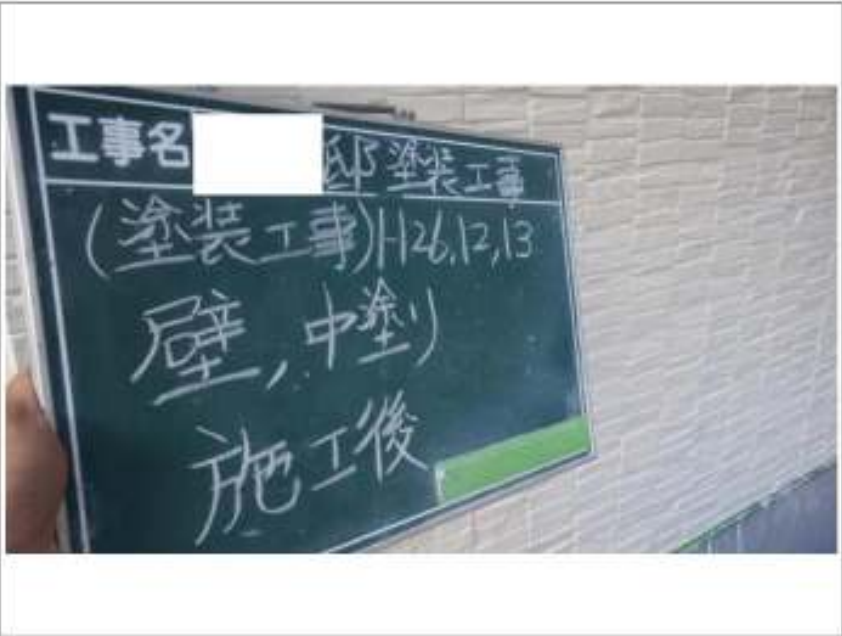 工事名 邸塗装工事
(塗装工事)H26,12,13
壁,中塗り
施工後